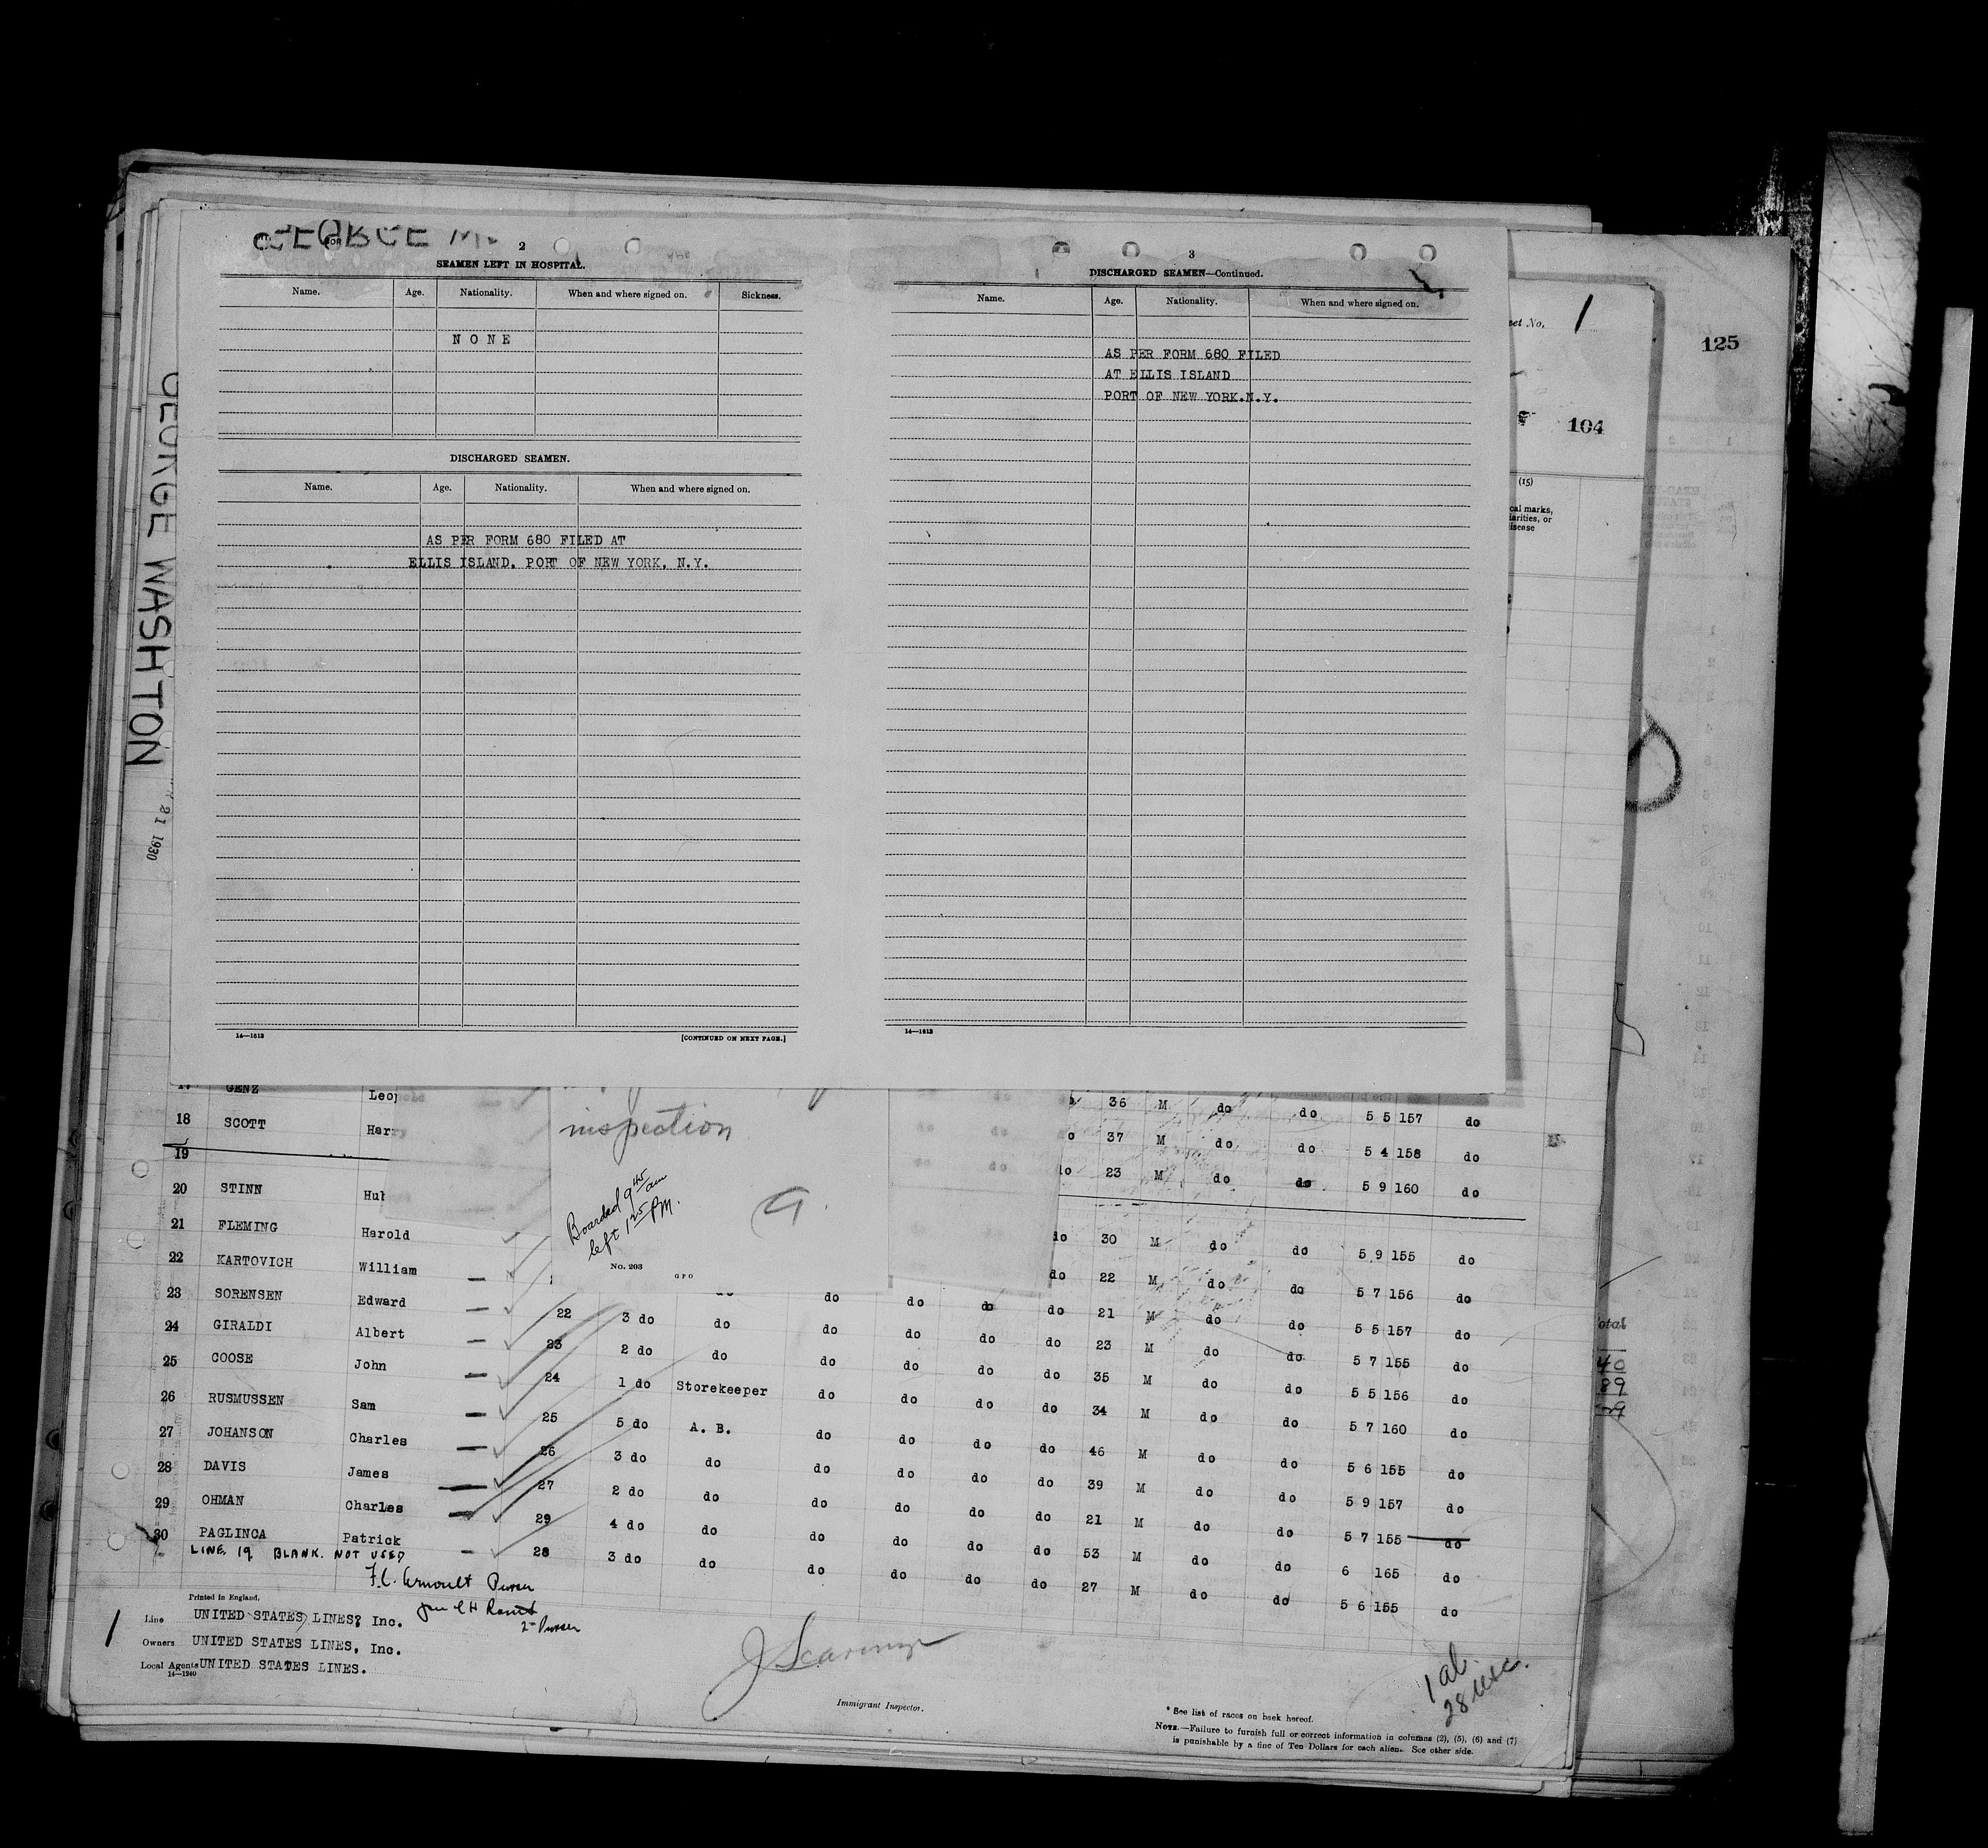 2
SEAMEN LEFT IN HOSPITAL.
Name. Age. Nationality. When and where signed on. Sickness.
NONE
DISCHARGED SEAMEN.
Name. Age. Nationality. When and where signed on.
AS PER FORM 680 FILED AT
ELLIS ISLAND. PORT OF NEW YORK. N.Y.
14—1613
[CONTINUED ON NEXT PAGE.]
3
DISCHARGED SEAMEN—Continued.
Name. Age. Nationality. When and where signed on.
AS PER FORM 680 FILED
AT ELLIS ISLAND
PORT OF NEW YORK.N.Y.
14—1613
GEORGE WASHTON
21 1930
No. 1
125
104
(15)
17 GENZ 36 M do do 5 5 157 do
18 SCOTT Harry 37 M do do 5 4 158 do
19 23 M do do 5 9 160 do
20 STINN 30 M do do 5 9 155 do
21 FLEMING Harold do 22 M do do 5 7 156 do
22 KARTOVICH William 22 3 do do do do do do 21 M do do 5 5 157 do
23 SORENSEN Edward 23 2 do do do do do do 23 M do do 5 7 155 do
24 GIRALDI Albert 24 1 do Storekeeper do do do do 35 M do do 5 5 156 do
25 COOSE John 25 5 do A. B. do do do do 34 M do do 5 7 160 do
26 RUSMUSSEN Sam 26 3 do do do do do do 46 M do do 5 6 155 do
27 JOHANSON Charles 27 2 do do do do do do 39 M do do 5 9 157 do
28 DAVIS James 29 4 do do do do do do 21 M do do 5 7 155 do
29 OHMAN Charles 28 3 do do do do do do 53 M do do 6 165 do
30 PAGLINCA Patrick do do do 27 M do do 5 6 155 do
inspection
Boarded 9 45 am
left 1 25 PM.
No. 203
GPO
LINE 19 BLANK. NOT USED
Purser
2nd Purser
Printed in England.
Line UNITED STATES LINES, Inc.
Owners UNITED STATES LINES, Inc.
Local Agents UNITED STATES LINES.
14—1240
1
Immigrant Inspector.
1 al.
28 usc.
* See list of races on back hereof.
NOTE.—Failure to furnish full or correct information in columns (2), (5), (6) and (7)
is punishable by a fine of Ten Dollars for each alien. See other side.